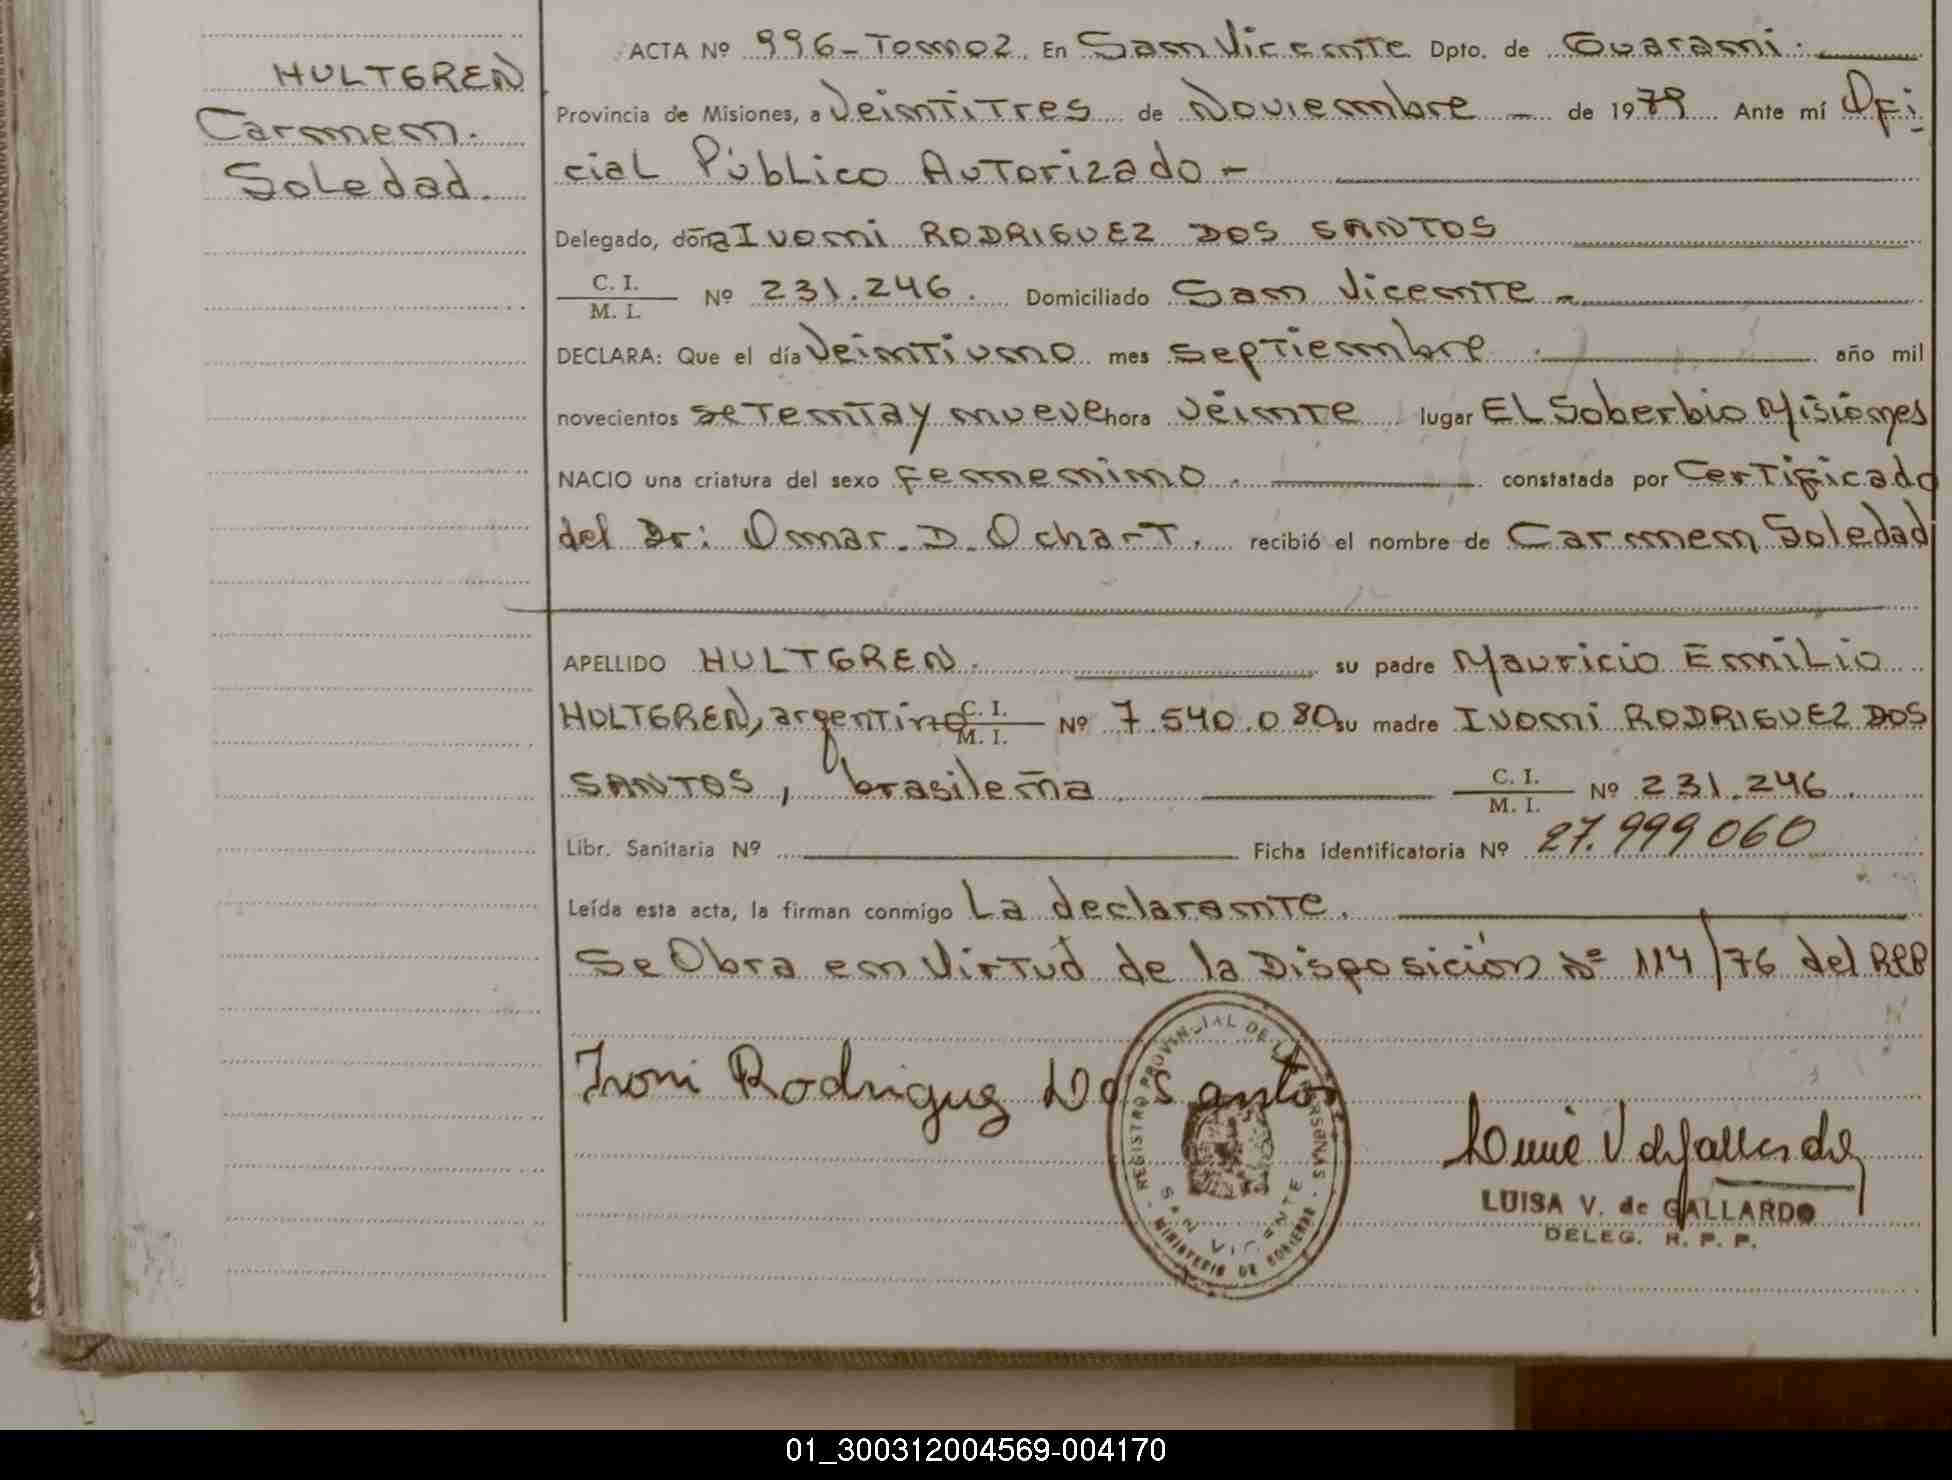 HULTGREN
Carmem.
Soledad.
ACTA Nº 996-Tomo2. En San Vicente Dpto. de Guarani.
Provincia de Misiones, a Veintitres de Noviembre de 1979 Ante mí Ofi
cial Público Autorizado -
Delegado, doña Ivoni RODRIGUEZ DOS SANTOS
C. I.
M. I. Nº 231.246. Domiciliado San Vicente -
DECLARA: Que el día Veintiuno mes Septiembre año mil
novecientos setenta y nueve hora veinte lugar El Soberbio Misiones
NACIO una criatura del sexo femenino. constatada por Certificado
del Dr: Omar. D. Ochart. recibió el nombre de Carmem Soledad
APELLIDO HULTGREN. su padre Mauricio Emilio
HULTGREN, argentino C. I. M. I. Nº 7.540.080 su madre Ivoni RODRIGUEZ DOS
SANTOS, brasileña C. I. M. I. Nº 231.246.
Libr. Sanitaria Nº Ficha identificatoria Nº 27.999060
Leída esta acta, la firman conmigo La declarante.
Se Obra en Virtud de la Disposición Nº 114/76 del RPP
Ivoni Rodriguez Do Santos
REGISTRO PROVINCIAL DE LAS PERSONAS
SAN VICENTE
MINISTERIO DE GOBIERNO
Luisa V de Gallardo
LUISA V. de GALLARDO
DELEG. R. P. P.
01_300312004569-004170